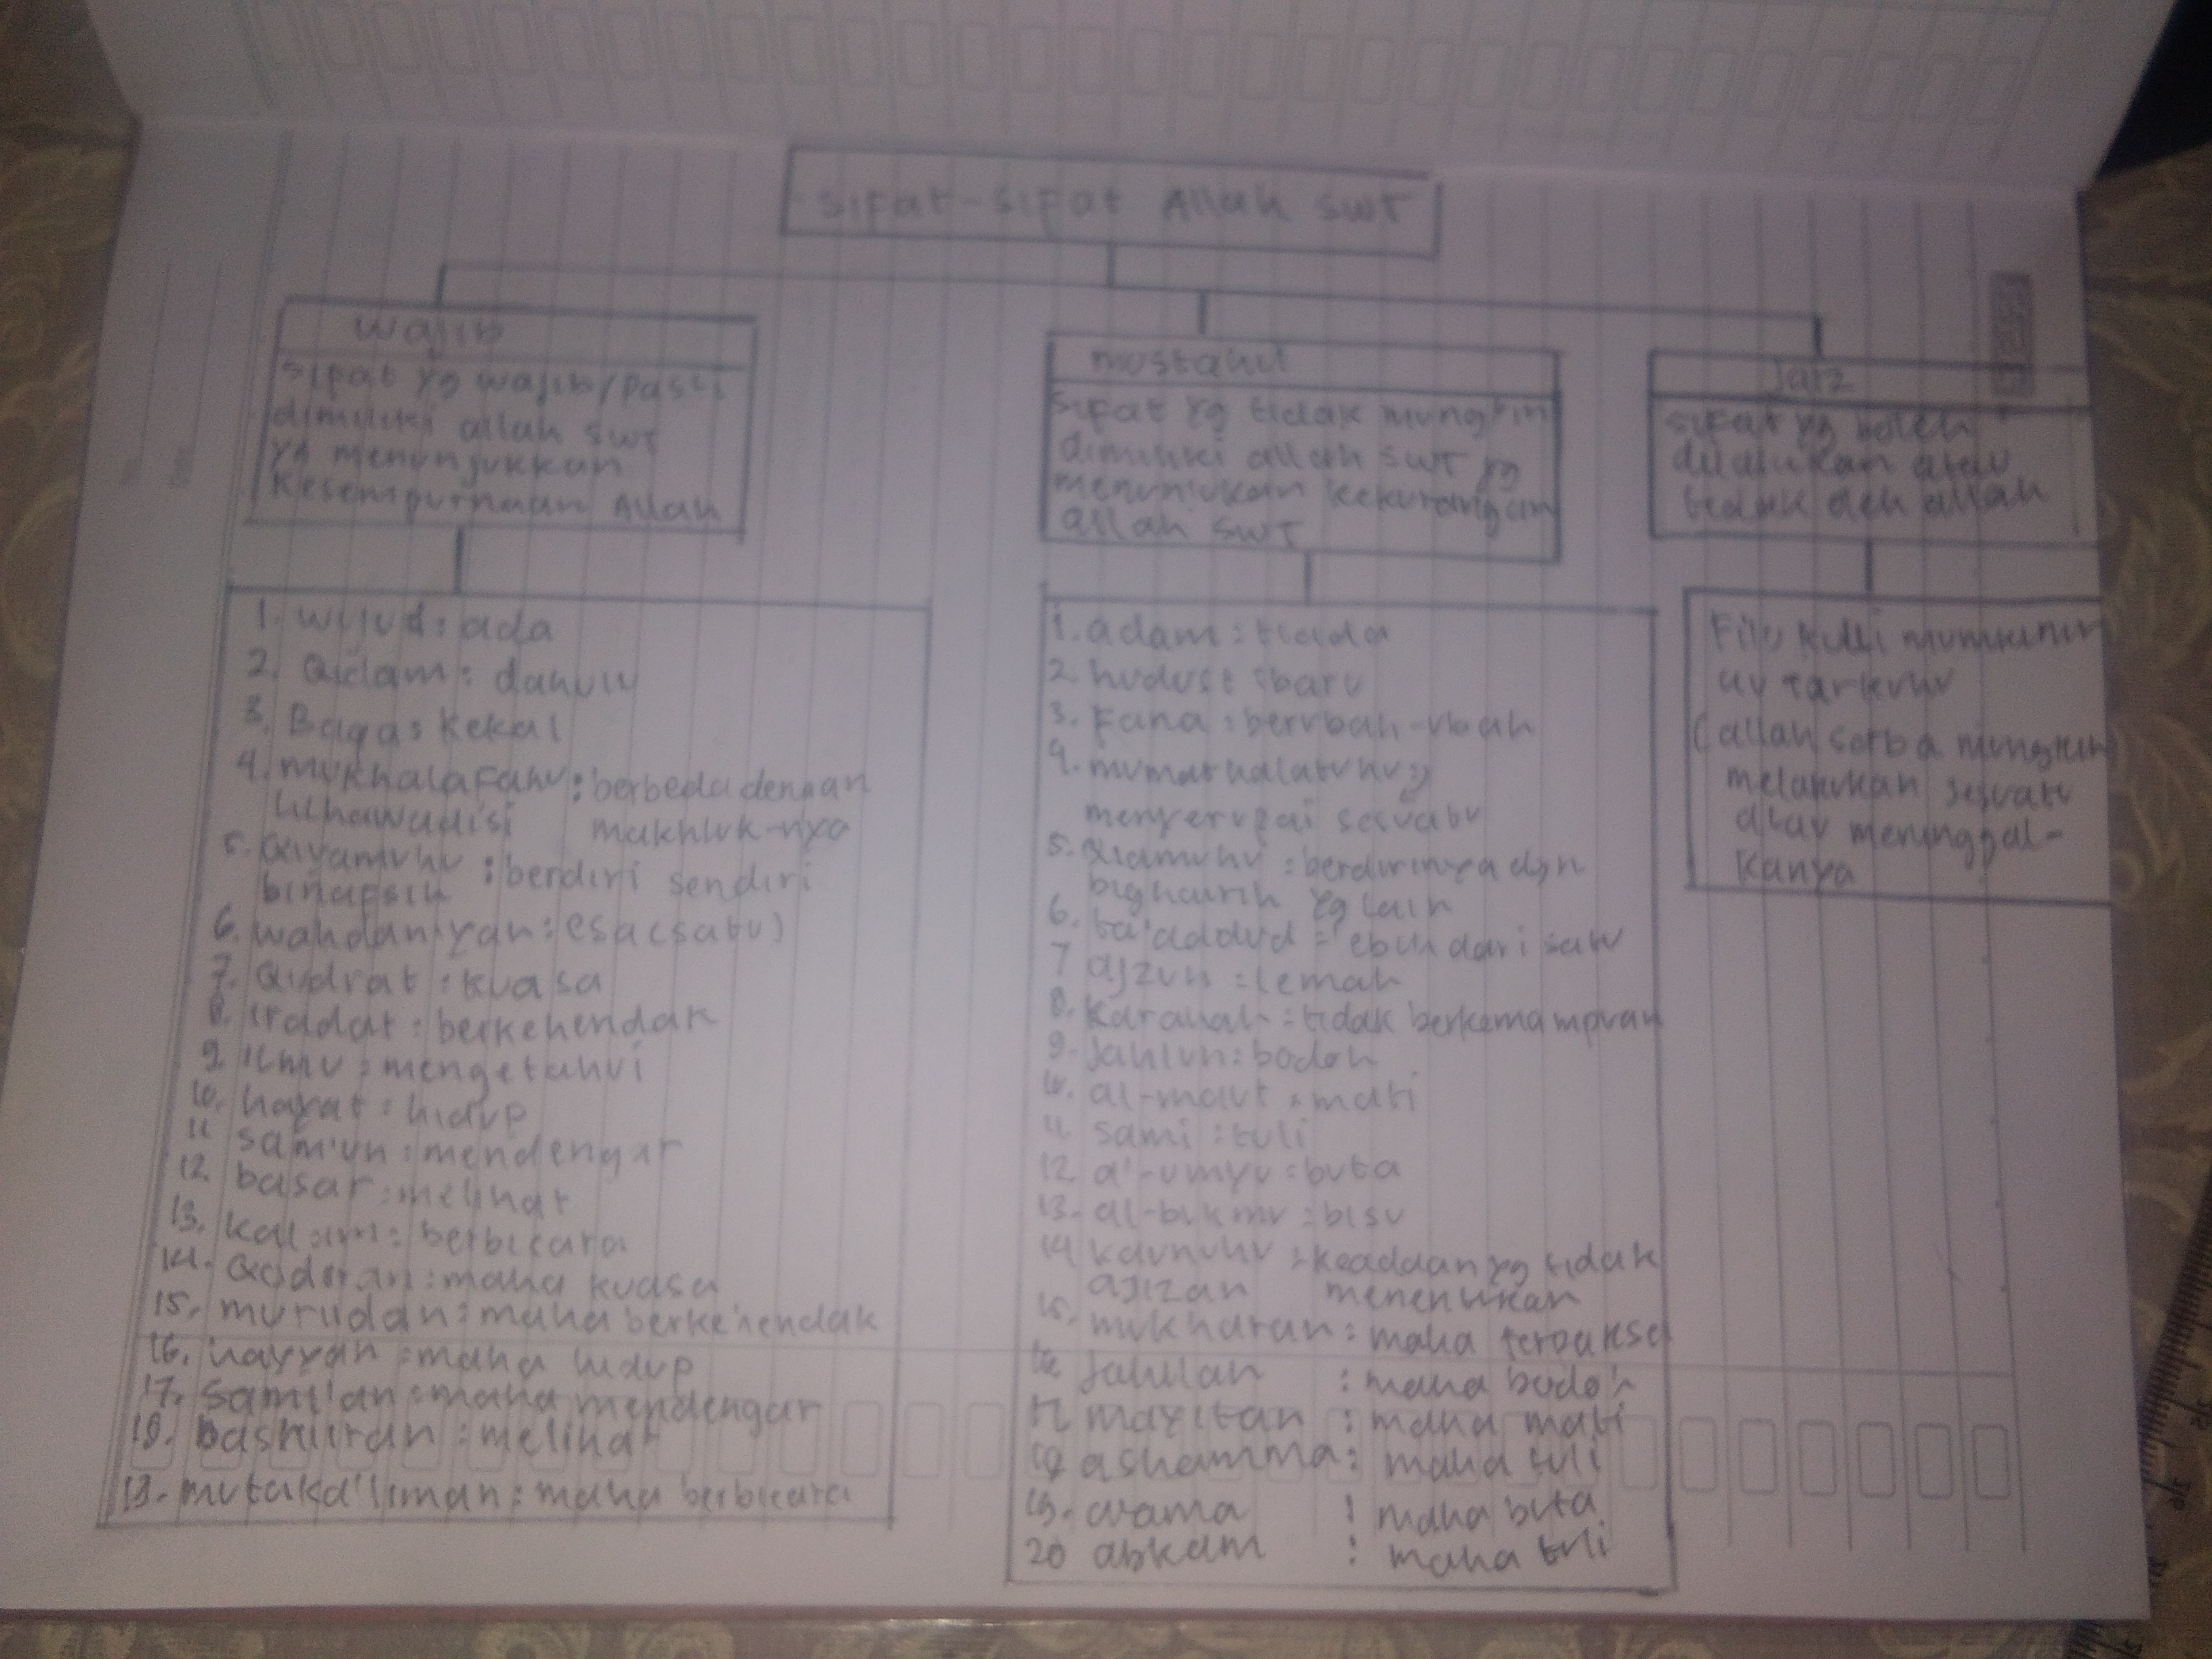 sifat-sifat Allah SWT
wajib
sifat yg wajib/pasti
dimiliki allah swt
yg menunjukkan
Kesempurnaan Allah
1. wujud : ada
2. Qidam : dahulu
3. Baqa : kekal
4. mukhalafahu : berbeda dengan
lilhawadisi makhluk-nya
5. Qiyamuhu : berdiri sendiri
binafsih
6. wahdaniyan : esa (satu)
7. Qudrat : kuasa
8. iradat : berkehendak
9. Ilmu : mengetahui
10. hayat : hidup
11 sam'un : mendengar
12 basar : melihat
13. kalam : berbicara
14. Qodiran : maha kuasa
15. muridan : maha berkehendak
16. hayyan : maha hidup
17. sami'an : maha mendengar
18. bashiiran : melihat
19. mutaka'liman : maha berbicara
mustahil
sifat yg tidak mungkin
dimiliki allah SWT yg
menunjukan kekurangan
allah SWT
1. adam : tiada
2. hudust : baru
3. Fana : berubah-ubah
4. mumathalatuhu :
menyerupai sesuatu
5. Qiamuhu : berdirinya dgn
bighairih yg lain
6. ta'addud = lebih dari satu
7 ajzun = lemah
8. Karahah = tidak berkemampuan
9. Jahlun : bodoh
10. al-maut : mati
11 sami : tuli
12 a'-umyu : buta
13. al-bukmu : bisu
14 kaunuhu : keadaan yg tidak
ajizan
15. mukharan : maha terpaksa
16 Jahilan : maha bodoh
17 mayitan : maha mati
18 ashamma : maha tuli
19. : maha buta
20 abkam : maha tuli
Jaiz
sifat yg boleh
dilakukan atau
tidak oleh allah
Filu kulli mumkinin
au tarkuhu
(allah serba mungkin
melakukan sesuatu
atau meninggal-
kanya